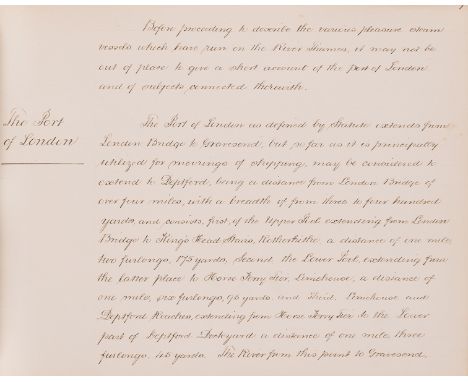 Before proceeding to describe the various pleasure steam
vessels which have run on the River Thames, it may not be
out of place to give a short account of the port of London
and of subjects connected therewith.
The Port
of London
The Port of London as defined by Statute extends from
London Bridge to Gravesend, but so far as it is principally
utilized for moorings of shipping, may be considered to
extend to Deptford, being a distance from London Bridge of
over four miles, with a breadth of from three to four hundred
yards, and consists, first, of the Upper Pool extending from London
Bridge to King's Head Stairs, Rotherhithe a distance of one mile,
two furlongs, 175 yards, Second the Lower Pool, extending from
the latter place to Horse Ferry Tier, Limehouse, a distance of
one mile, six furlongs, 95 yards and Third, Limehouse and
Deptford Reaches, extending from Horse Ferry Tier to the Lower
part of Deptford Dockyard a distance of one mile three
furlongs, 45 yards. The River from this point to Gravesend,